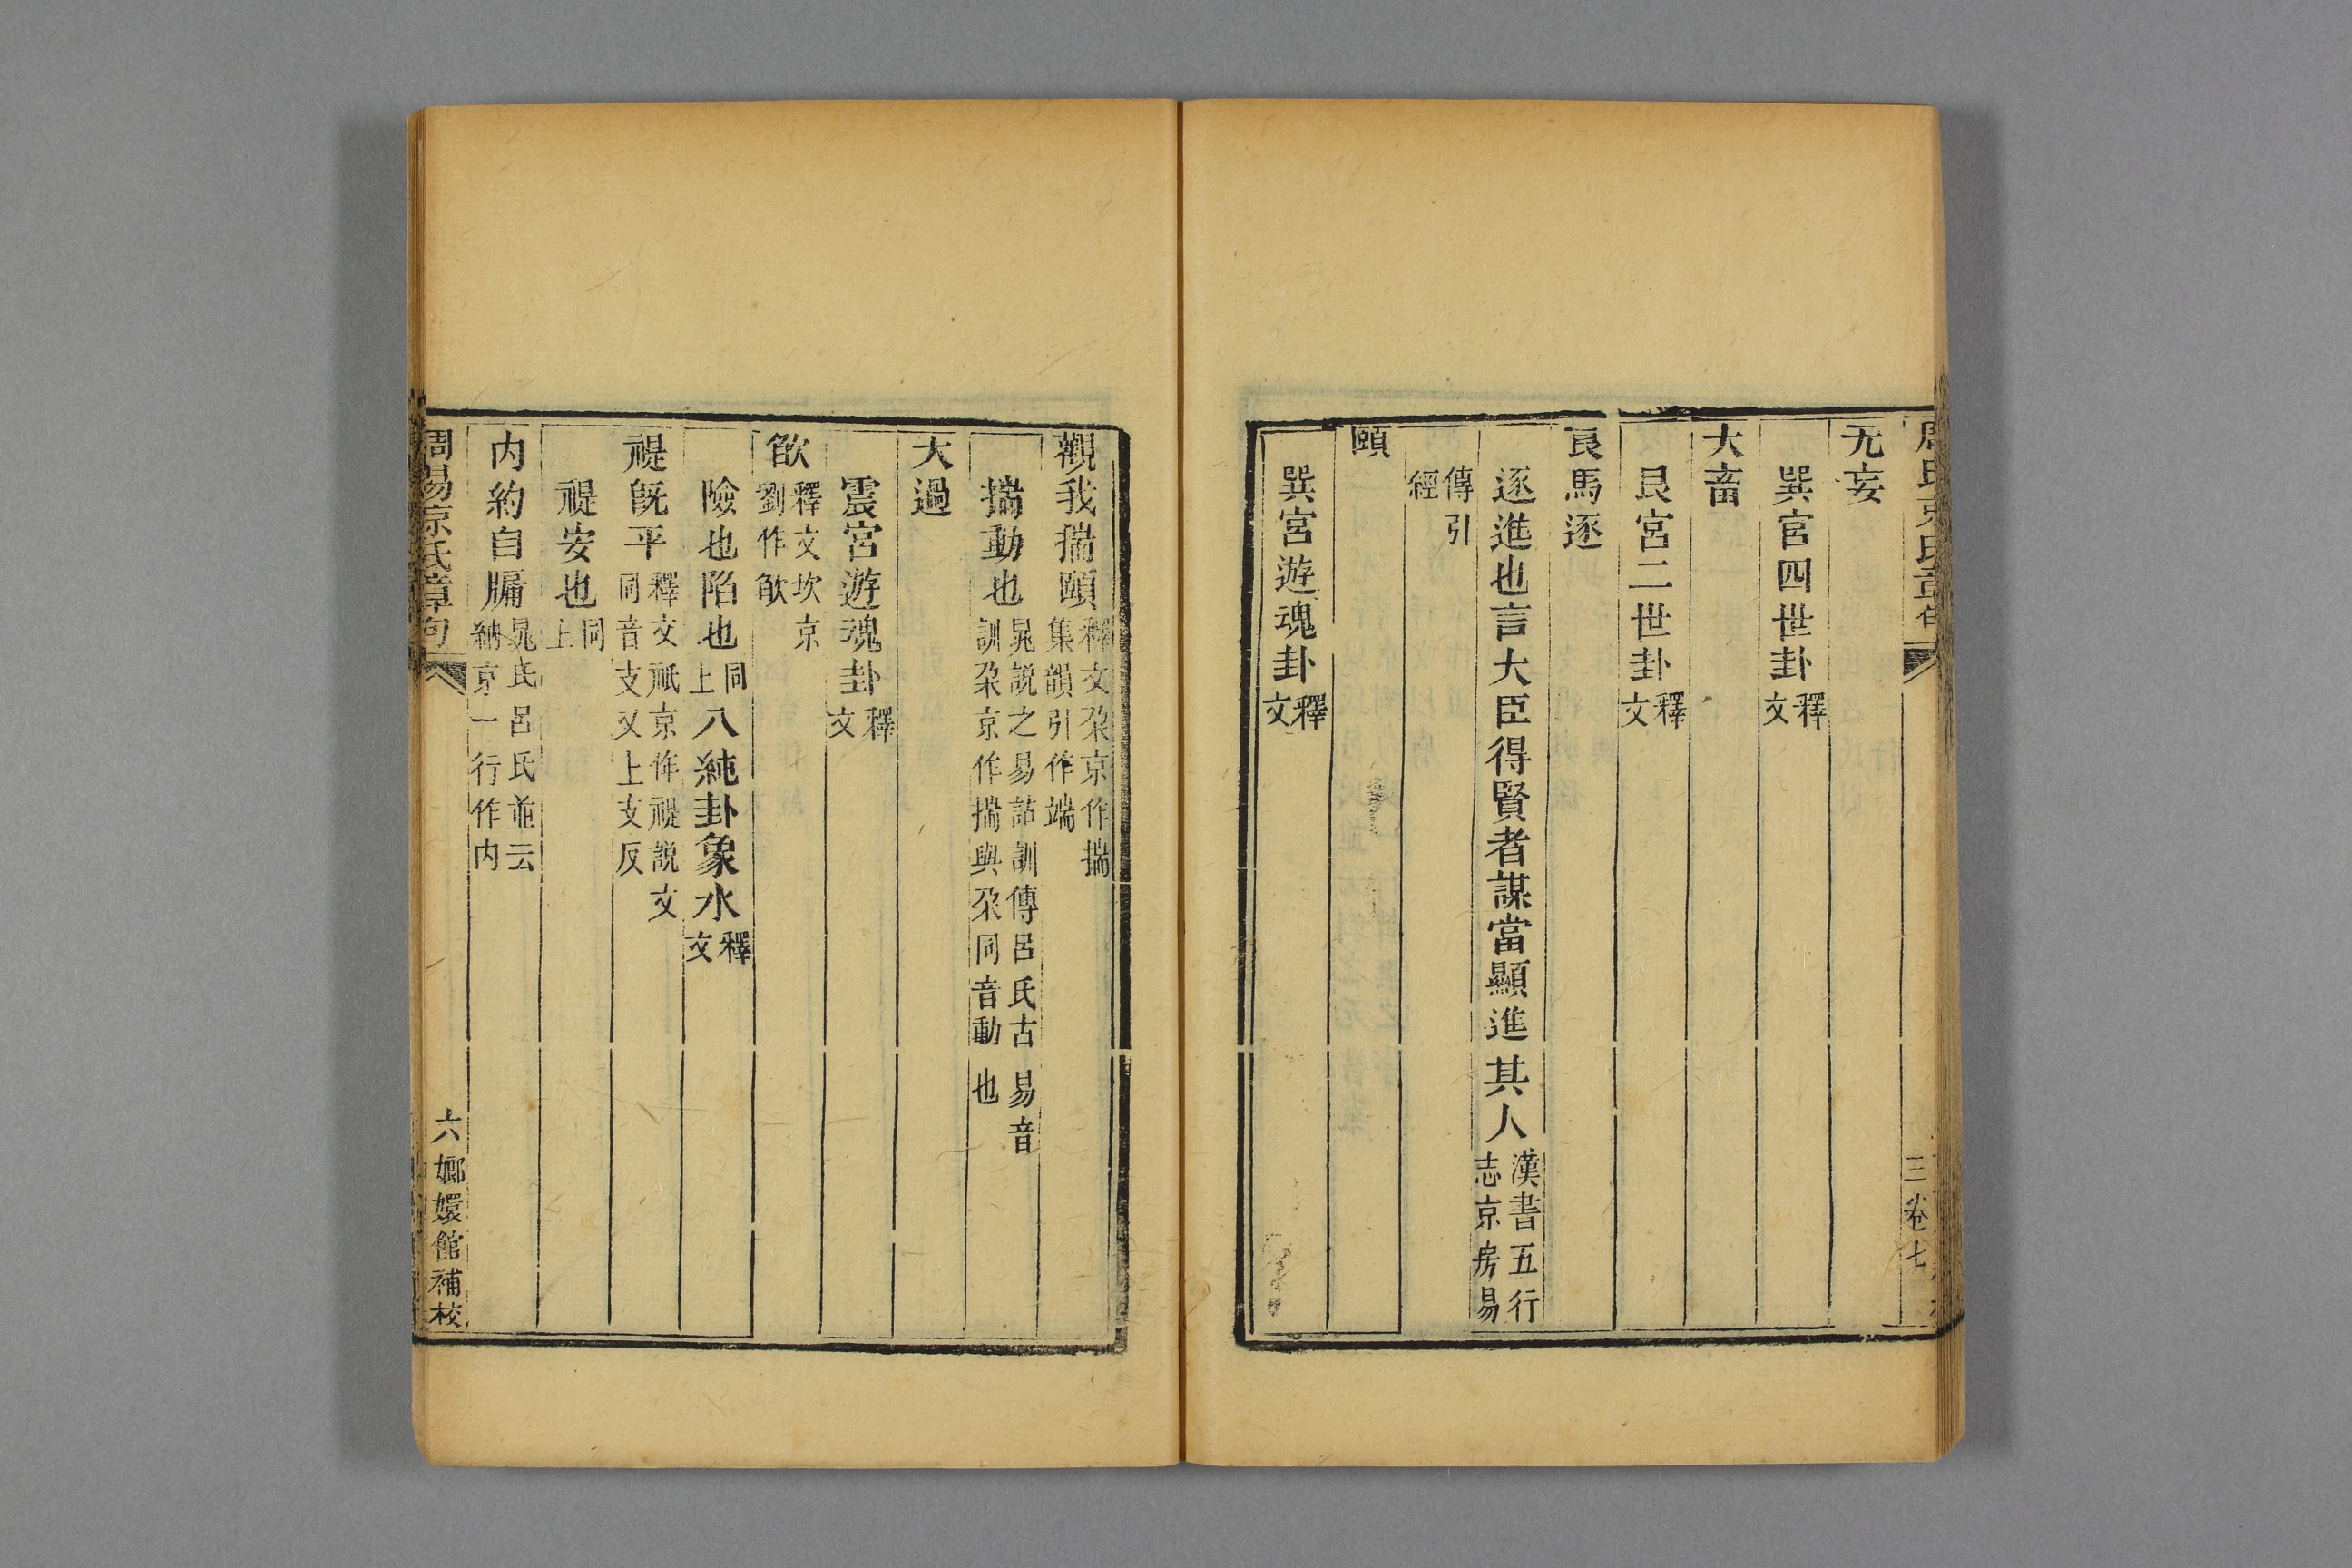 无妄
巽宮四世卦釋文
大畜
艮宮二世卦釋文
良馬逐
逐進也言大臣得賢者謀當顯進其人漢書五行志京房易
傳引經
頤
巽宮遊魂卦釋文
觀我揣頤釋文朶京作揣集韻引作端
揣動也晁説之易詁訓傳呂氏古易音訓朶京作揣與朶同音動也
大過
震宮遊魂卦釋文
欿釋文坎京劉作欿
險也陷也同上八純卦象水釋文
禔既平釋文祇京作禔説文同音支又上支反
禔安也同上
内約自牖晁氏呂氏並云納京一行作内
周易京氏章句
六
嫏嬛館補校
三
卷七